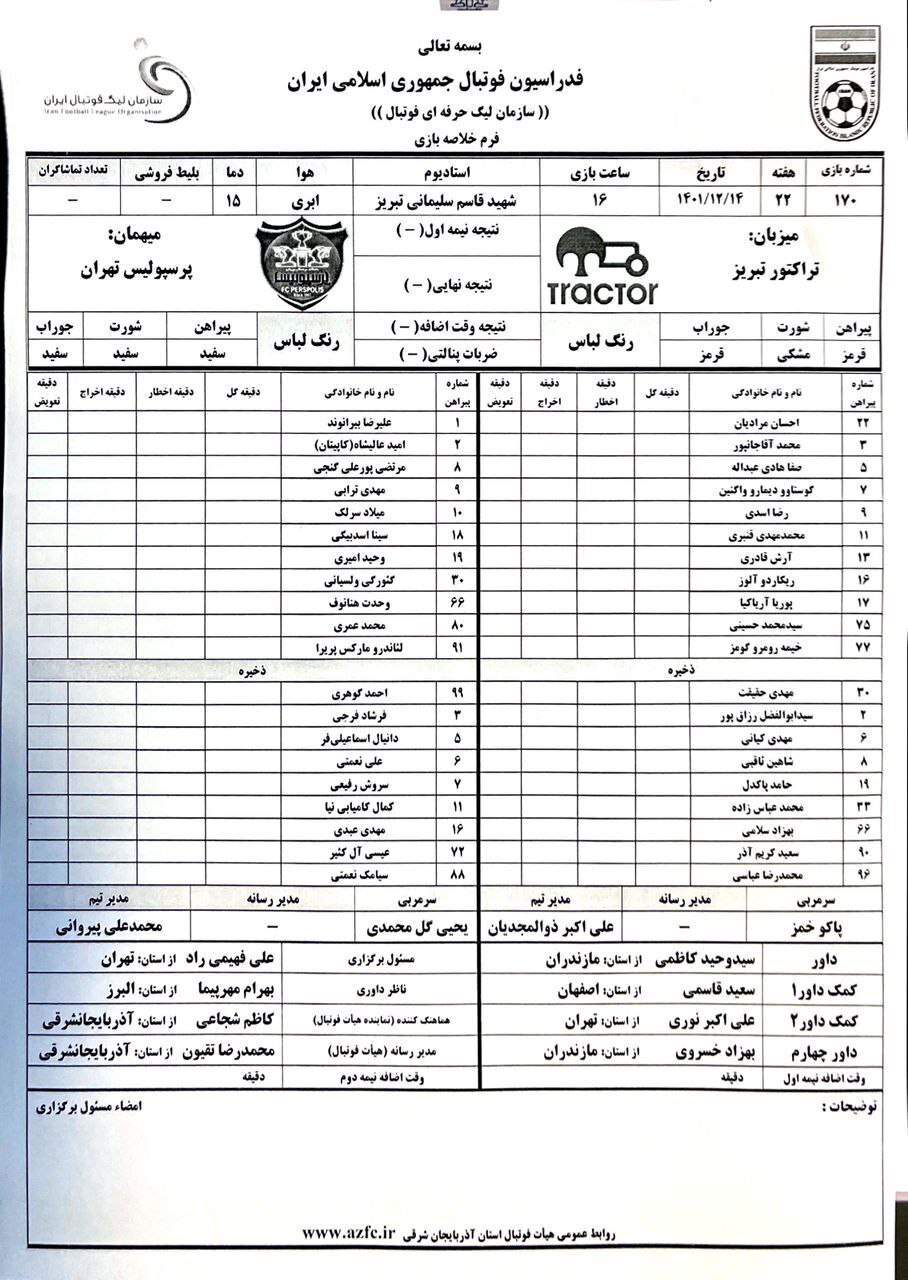 بسمه تعالی
فدراسیون فوتبال جمهوری اسلامی ایران
(( سازمان لیگ حرفه ای فوتبال ))
فرم خلاصه بازی
سازمان لیگ فوتبال ایران
Iran Football League Organisation
FOOTBALL FEDERATION ISLAMIC REPUBLIC OF IRAN
شماره بازی هفته تاریخ ساعت بازی استادیوم هوا دما بلیط فروشی تعداد تماشاگران
۱۷۰ ۲۲ ۱۴۰۱/۱۲/۱۴ ۱۶ شهید قاسم سلیمانی تبریز ابری ۱۵ – –
میزبان:
تراکتور تبریز
TRACTOR
نتیجه نیمه اول( – )
نتیجه نهایی( – )
میهمان:
پرسپولیس تهران
پرسپولیس
FC PERSPOLIS
پیراهن شورت جوراب رنگ لباس نتیجه وقت اضافه( – ) رنگ لباس پیراهن شورت جوراب
قرمز مشکی قرمز ضربات پنالتی( – ) سفید سفید سفید
شماره پیراهن نام و نام خانوادگی دقیقه گل دقیقه اخطار دقیقه اخراج دقیقه تعویض شماره پیراهن نام و نام خانوادگی دقیقه گل دقیقه اخطار دقیقه اخراج دقیقه تعویض
۲۲ احسان مرادیان ۱ علیرضا بیرانوند
۳ محمد آقاجانپور ۲ امید عالیشاه(کاپیتان)
۵ صفا هادی عبداله ۸ مرتضی پورعلی گنجی
۷ گوستاوو دیمارو واکنین ۹ مهدی ترابی
۹ رضا اسدی ۱۰ میلاد سرلک
۱۱ محمدمهدی قنبری ۱۸ سینا اسدبیگی
۱۳ آرش قادری ۱۹ وحید امیری
۱۶ ریکاردو آلوز ۳۰ گئورگی ولسیانی
۱۷ پوریا آریاکیا ۶۶ وحدت هنانوف
۷۵ سیدمحمد حسینی ۸۰ محمد عمری
۷۷ خیمه رومرو گومز ۹۱ لئاندرو مارکس پریرا
ذخیره ذخیره
۳۰ مهدی حقیقت ۹۹ احمد گوهری
۲ سیدابوالفضل رزاق پور ۳ فرشاد فرجی
۶ مهدی کیانی ۵ دانیال اسماعیلی‌فر
۸ شاهین ثاقبی ۶ علی نعمتی
۱۹ حامد پاکدل ۷ سروش رفیعی
۳۳ محمد عباس زاده ۱۱ کمال کامیابی نیا
۶۶ بهزاد سلامی ۱۶ مهدی عبدی
۹۰ سعید کریم آذر ۷۲ عیسی آل کثیر
۹۶ محمدرضا عباسی ۸۸ سیامک نعمتی
سرمربی مدیر رسانه مدیر تیم سرمربی مدیر رسانه مدیر تیم
پاکو خمز – علی اکبر ذوالمجدیان یحیی گل محمدی – محمدعلی پیروانی
داور سیدوحید کاظمی از استان: مازندران مسئول برگزاری علی فهیمی راد از استان: تهران
کمک داور۱ سعید قاسمی از استان: اصفهان ناظر داوری بهرام مهرپیما از استان: البرز
کمک داور۲ علی اکبر نوری از استان: تهران هماهنگ کننده (نماینده هیأت فوتبال) کاظم شجاعی از استان: آذربایجانشرقی
داور چهارم بهزاد خسروی از استان: مازندران مدیر رسانه (هیأت فوتبال) محمدرضا تقیون از استان: آذربایجانشرقی
وقت اضافه نیمه اول دقیقه وقت اضافه نیمه دوم دقیقه
توضیحات : امضاء مسئول برگزاری
روابط عمومی هیأت فوتبال استان آذربایجان شرقی www.azfc.ir